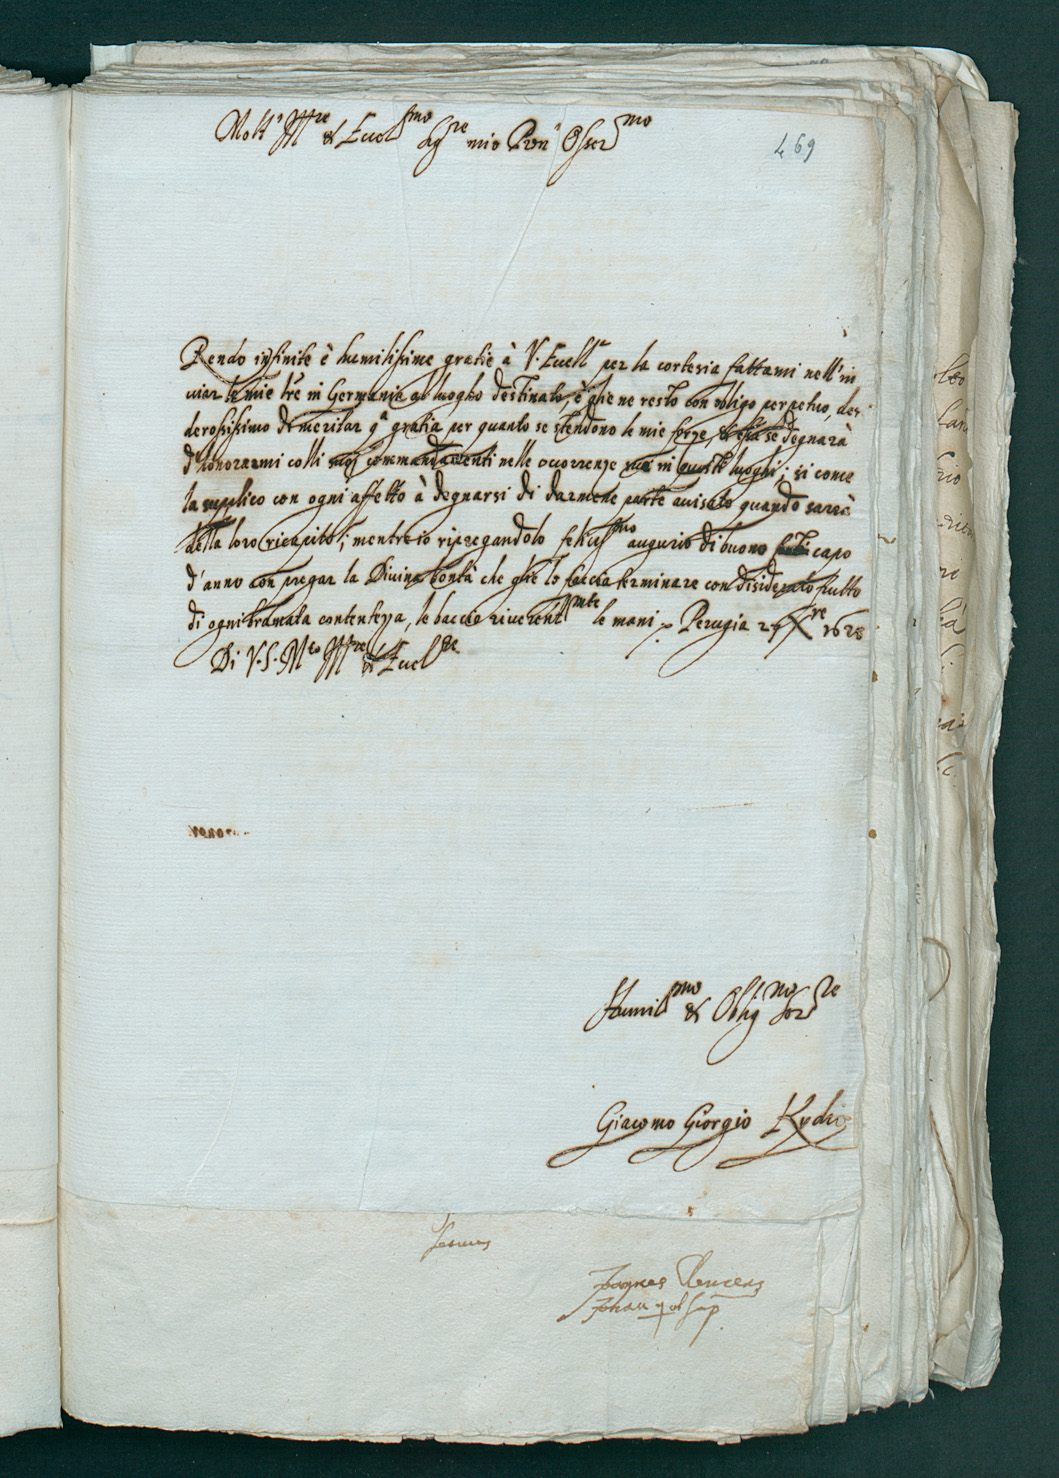 Molt' Ill^re & Eccel^mo Sig^re mio Pron' Osser^mo
469
Rendo infinite è humilissime gratie à V. Eccell^a per la cortesia fattami nell'in
uiar le mie lr̃e in Germania al luogho destinato, è glie ne resto con obligo perpetuo, desi
derosissimo di meritar q^a gratia per quanto se stendono le mie forze, & essa se degnarà
d'honorarmi colli suoi commandamenti nelle occorrenze sue in queste luoghi; si come
la supplico con ogni affetto à degnarsi di darmene parte auisato quando sarrà
della loro ricapito; mentre io ripregandolo felicis^mo augurio di buono capo
d'anno con pregar la Diuina bontà che glie lo faccia terminare con disiderato frutto
di ogni bramata contentezza, le baccio riuerent^mte le mani. Perugia 27 X^re 162
Di V.S. M^to Ill^re & Eccel^ze
Humil^mo & Oblig^mo Ser^re
Giacomo Giorgio